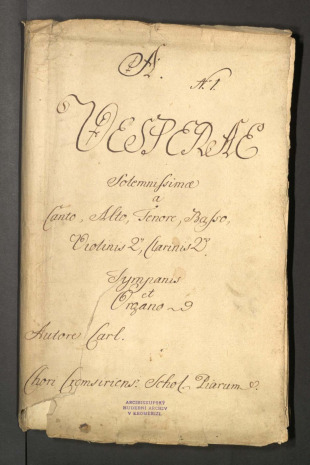 A.
N: 1
VESPERAE
Solemnissimæ
a
Canto, Alto, Tenore, Basso,
Violinis 2., Clarinis 2.
Tympanis
et
Organo
Autore Carl.
Chori Cremsiriens: Schol. Piarum
ARCIBISKUPSKÝ
HUDEBNÍ ARCHIV
V KROMĚŘÍŽI.